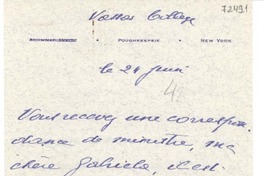 Vassar College
72491
POUGHKEEPSIE · NEW YORK
le 24 juin
Vous recevez une correspon
dance de ministre, ma
chère Gabriela, et est